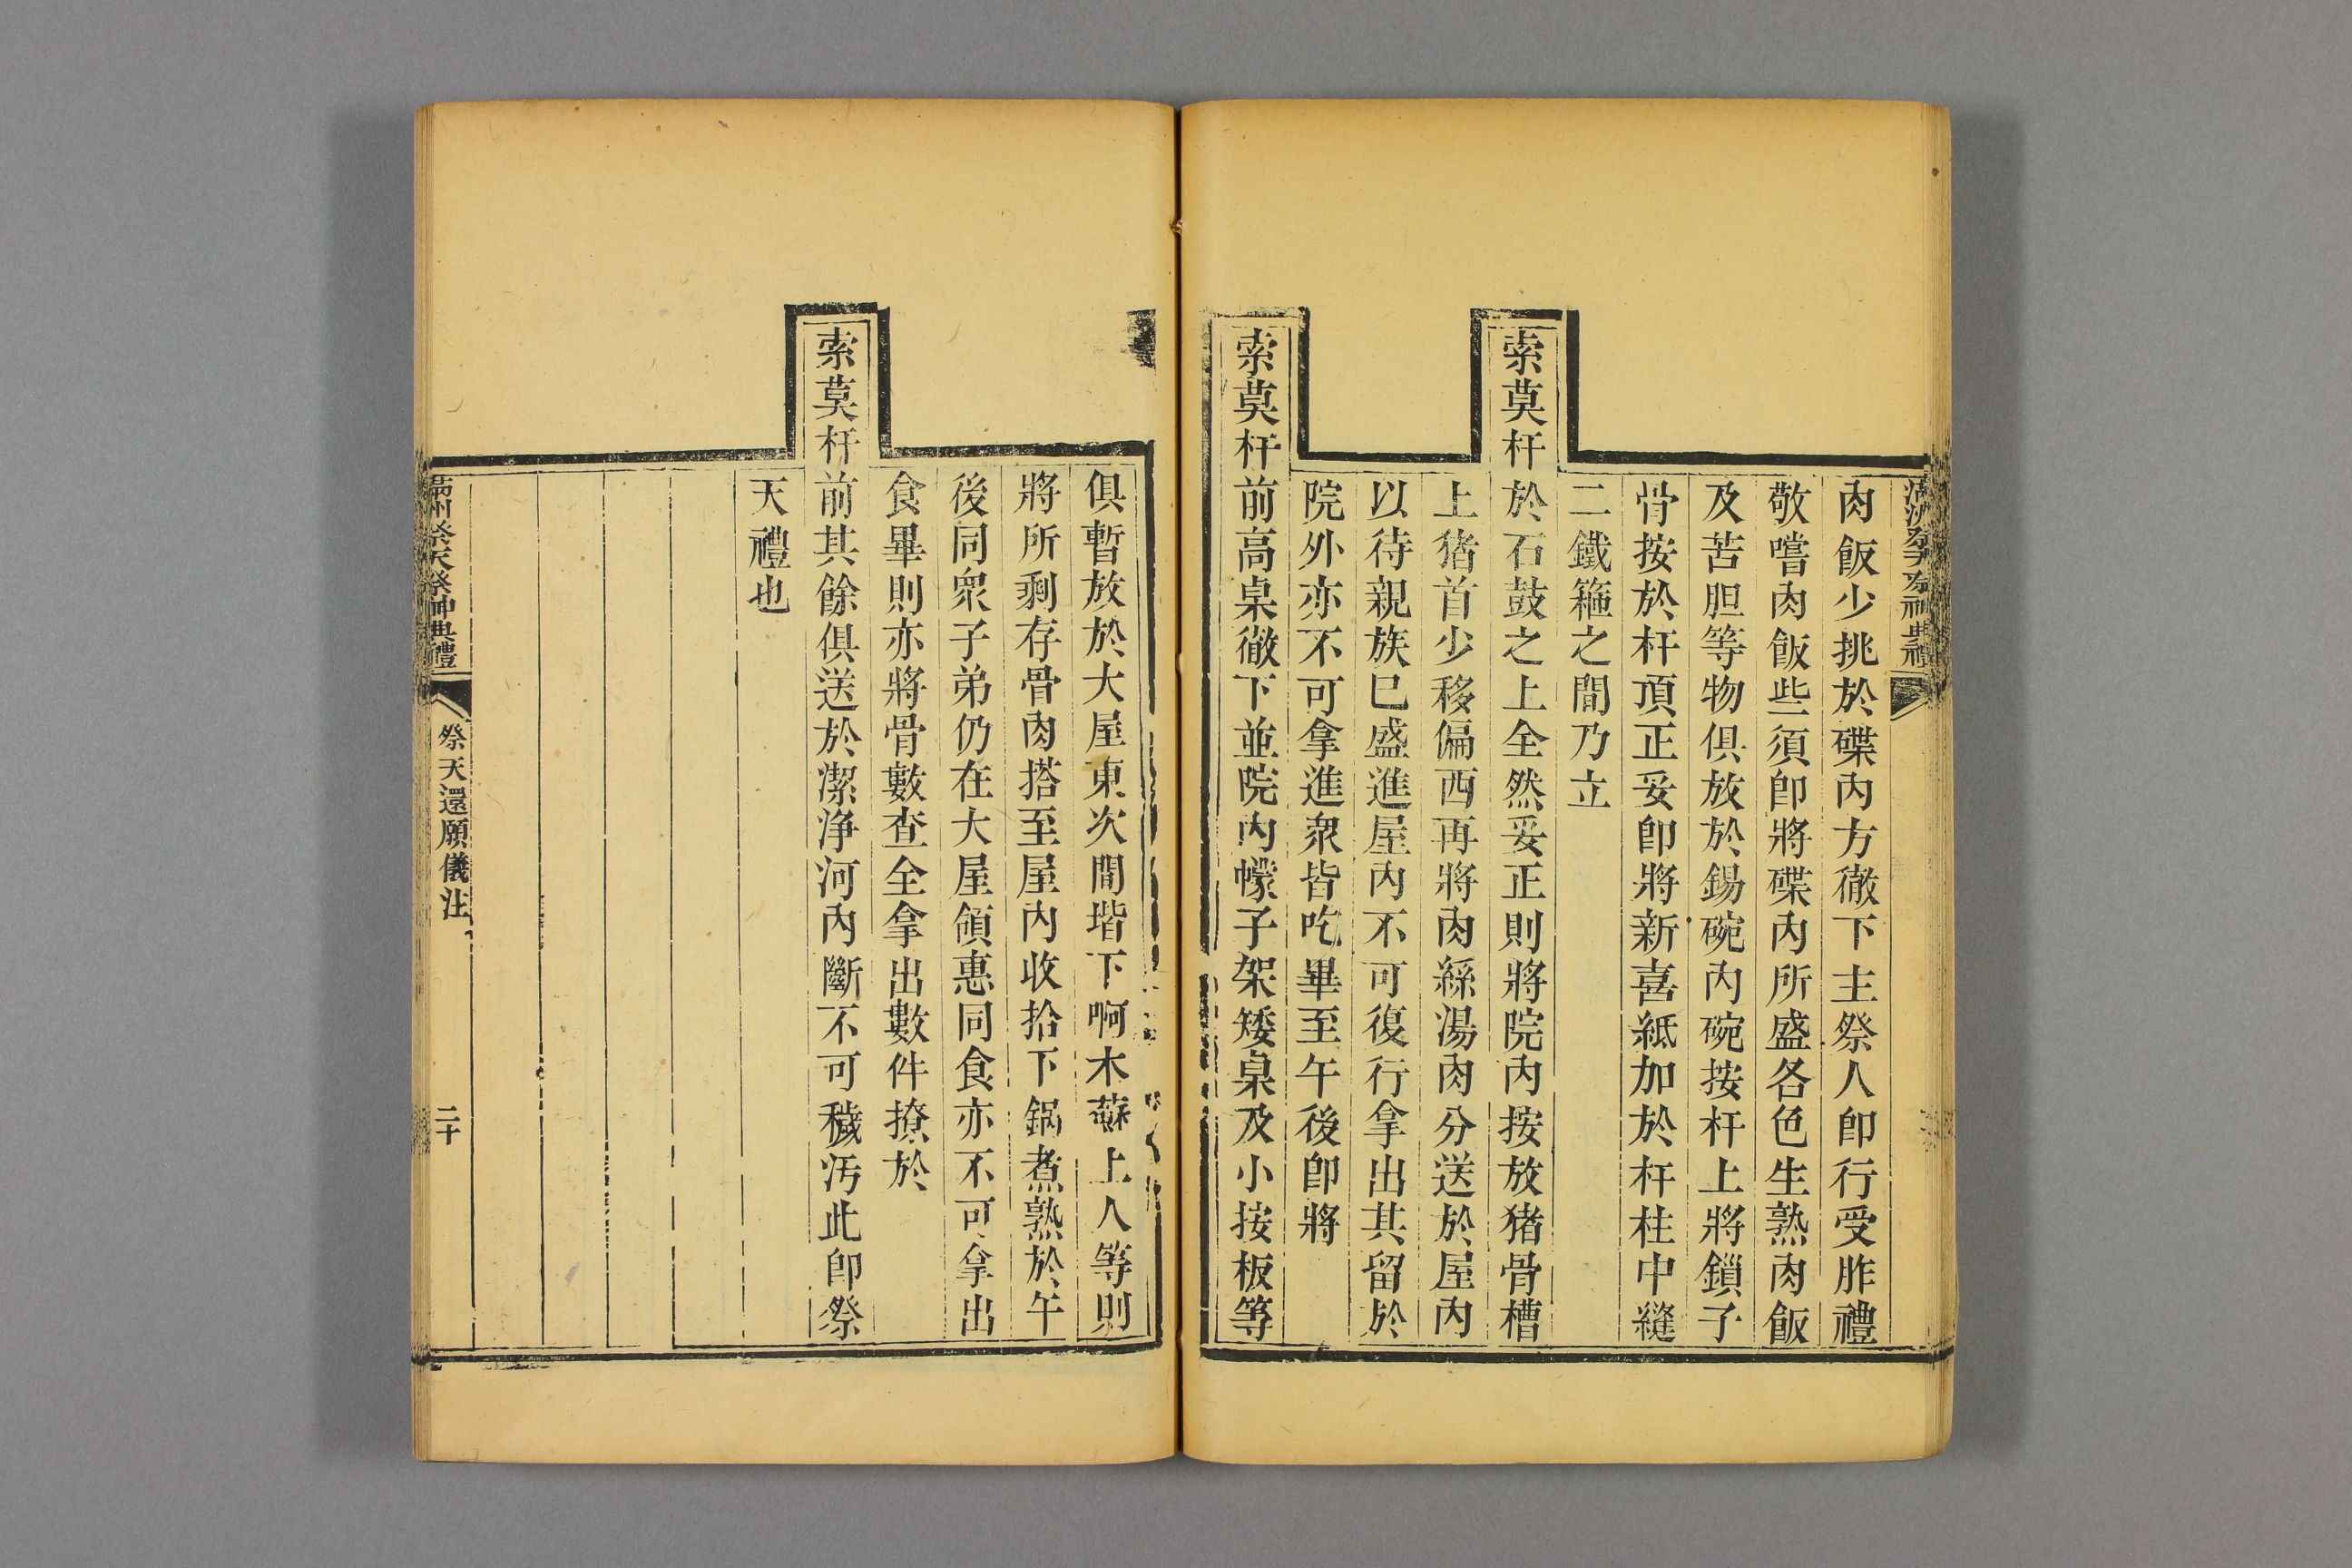 滿洲祭天祭神典禮
肉飯少挑於碟內方徹下主祭人卽行受胙禮
敬嚐肉飯些須卽將碟內所盛各色生熟肉飯
及苦胆等物俱放於錫碗內碗按杆上將鎖子
骨按於杆頂正妥卽將新喜紙加於杆柱中縫
二鐵箍之間乃立
索莫杆於石鼓之上全然妥正則將院內按放猪骨槽
上猪首少移偏西再將肉絲湯肉分送於屋內
以待親族已盛進屋內不可復行拿出其留於
院外亦不可拿進衆皆吃畢至午後卽將
索莫杆前高桌徹下並院內幪子架矮桌及小按板等
俱暫放於大屋東次間堦下啊木蘇上人等則
將所剩存骨肉搭至屋內收拾下鍋煮熟於午
後同衆子弟仍在大屋領惠同食亦不可拿出
食畢則亦將骨數查全拿出數件撩於
索莫杆前其餘俱送於潔淨河內斷不可穢汚此卽祭
天禮也
滿州祭天祭神典禮 祭天還願儀注 二十